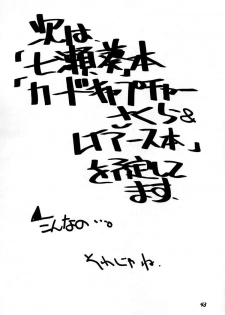 次は、
「七瀬葵本」
「カードキャプチャー
さくら&
レイアース本」
を予定して
ます。
こんなの…。
それじゃね。
43